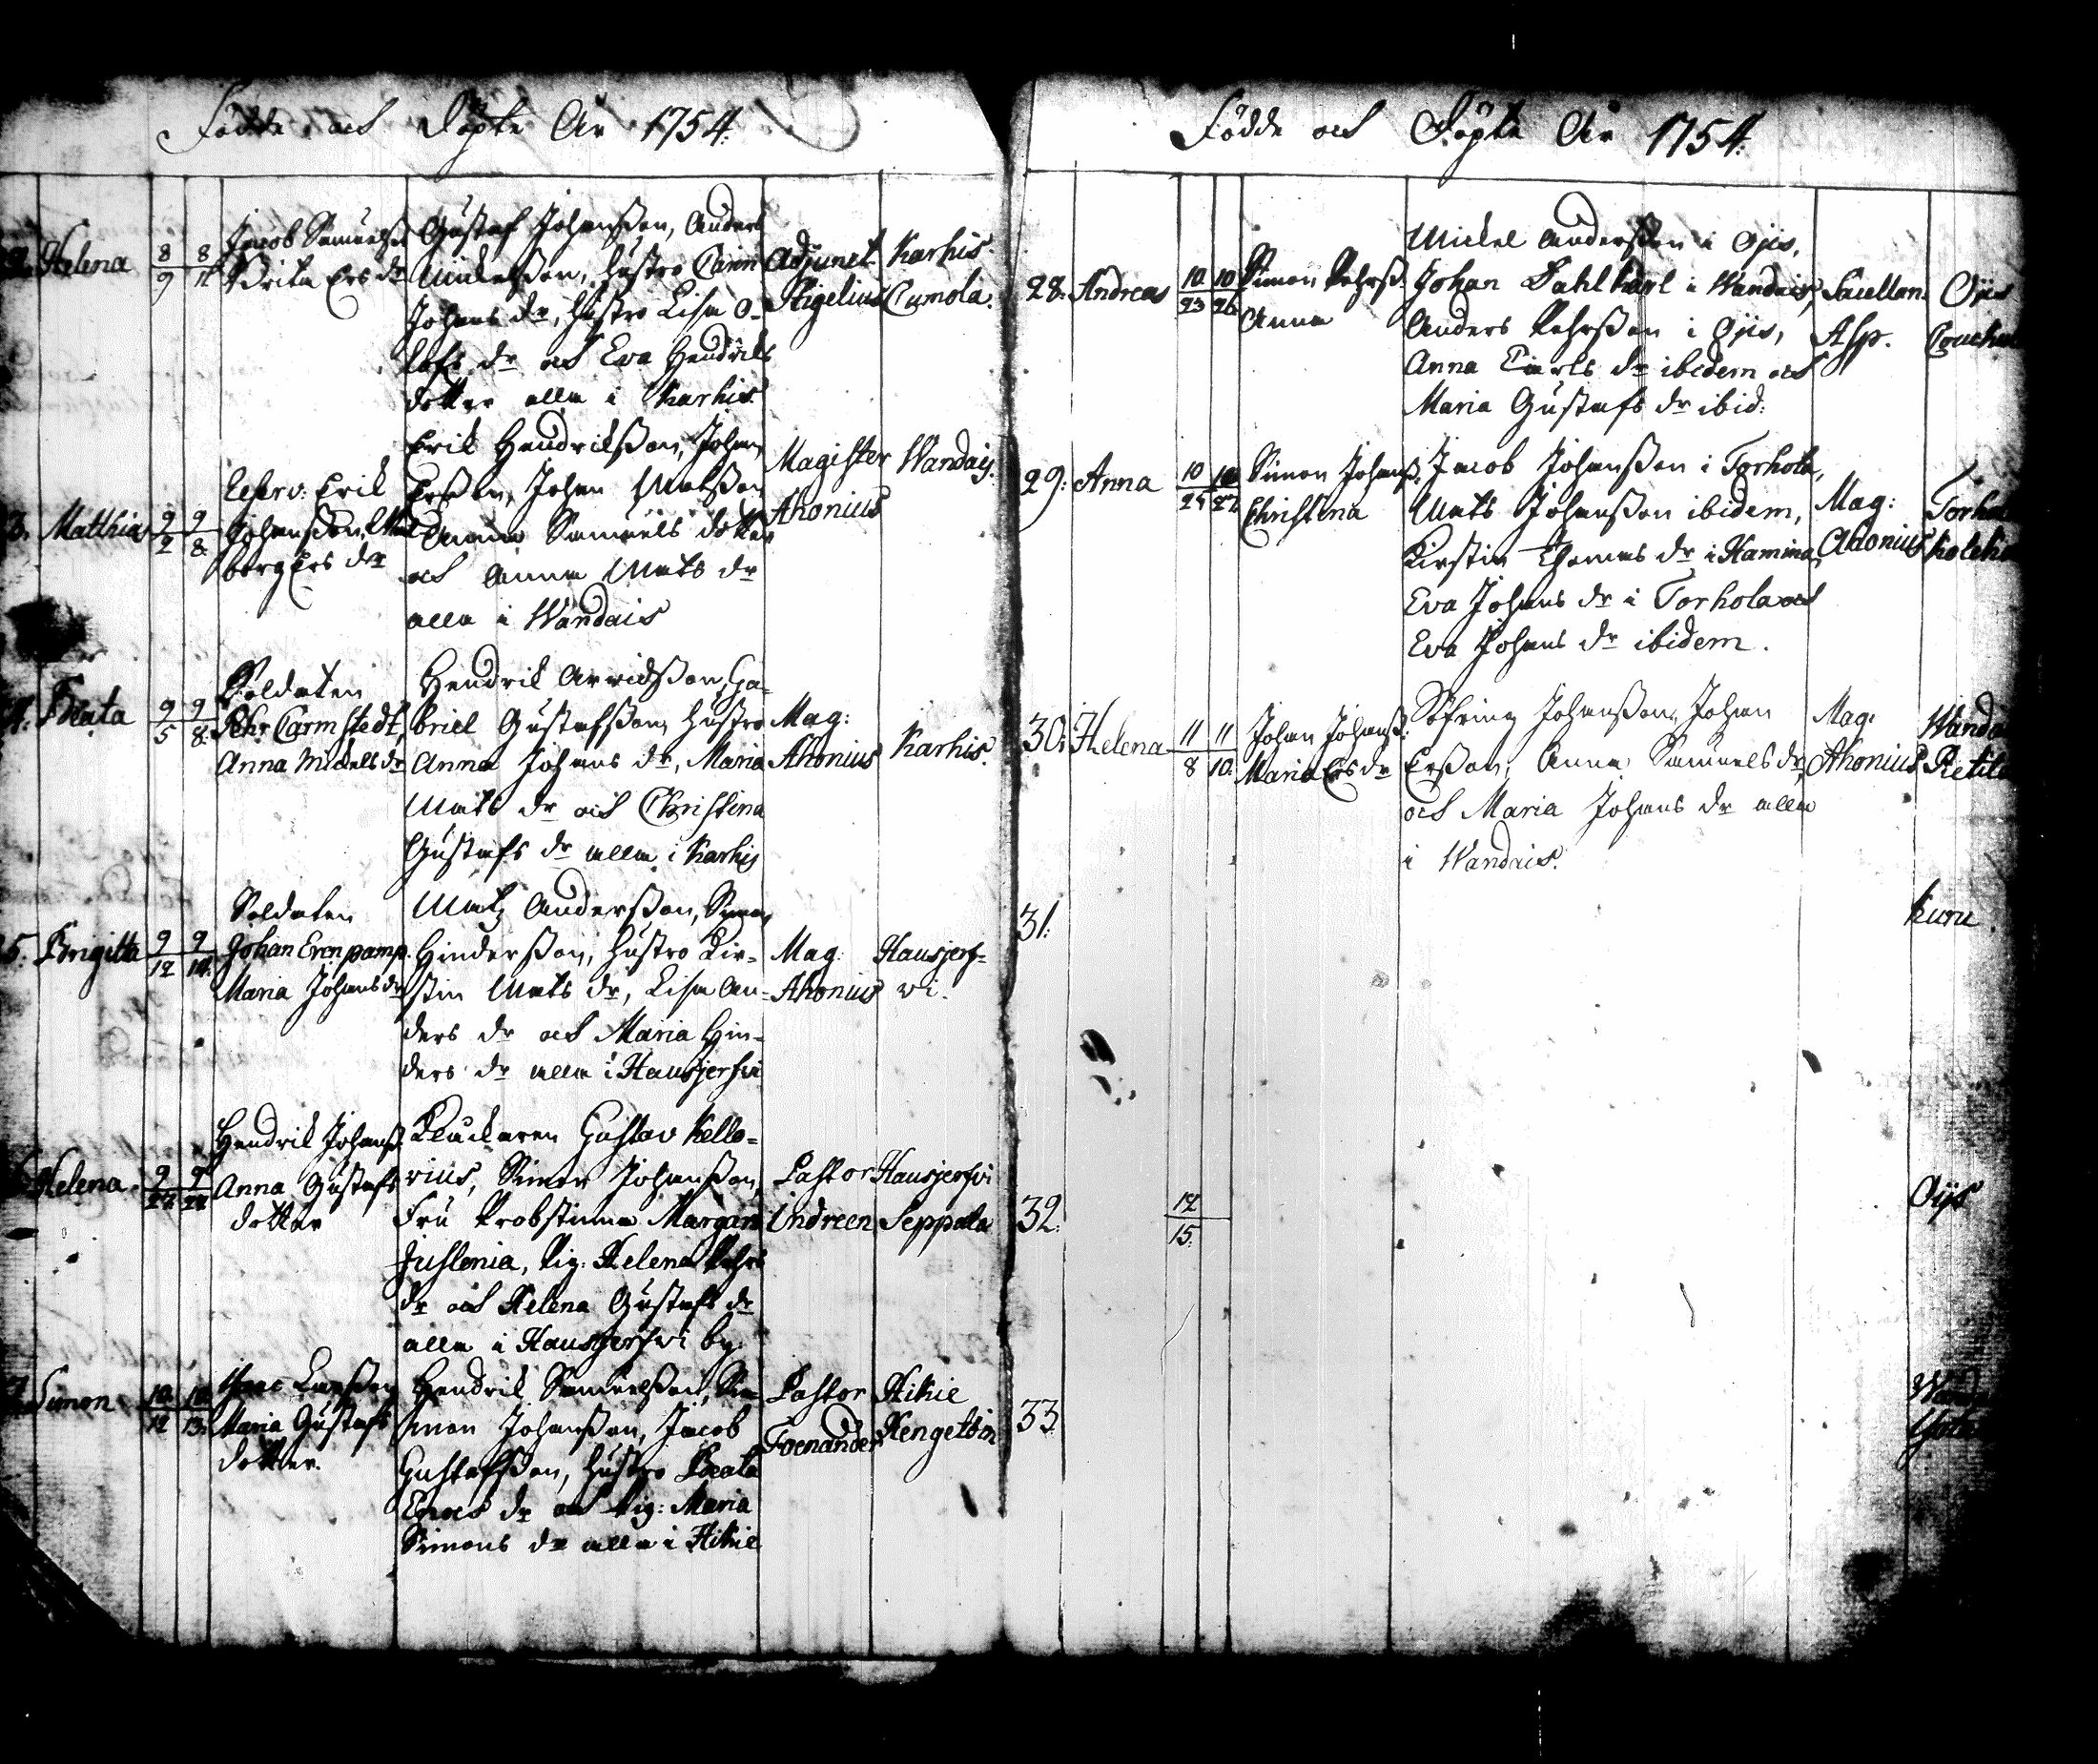 Födde och Döpte År 1754.
Helena
8 8
9 11
Jacob Samuelss.
Brita Ers dr
Gustaf Johansson, Anders
Mickelsson, hustro Carin
Johans dr, hustro Lisa O-
lofs dr och Eva Hendriks
dotter alla i Karhis
Adjunct.
Stigelius
Karhis.
Cumola.
3. Matthias
9 9
2 8.
Reserv: Erik
Johansson,
Ers dr
Erik Hendriksson, Johan
Ersson, Johan Matsson
Anna Samuels dotter
och Anna Mats dr
alla i Wandais
Magister
Ahonius
Wandais.
4. Beata
9 9
5 8.
Soldaten
Pehr Carmstedt,
Anna Mickels dr
Hendrik Arvidsson, Ga-
briel Gustafsson, hustro
Anna Johans dr, Maria
Mats dr och Christina
Gustafs dr alla i Karhis
Mag:
Ahonius
Karhis.
5. Brigitta
9 9
12 14.
Soldaten
Johan Erenpamp.
Maria Johans dr
Matz Andersson, Simon
Hindersson, hustro Kir-
stin Mats dr, Lisa An-
ders dr och Maria Hin-
ders dr alla i Hausjerfvi
Mag:
Ahonius
Hausjerf-
vi.
Helena.
9 9
Hendrik Johanss.
Anna Gustafs
dotter
Kluckaren Gustav Kello-
vius, Simon Johansson,
Fru Probstinna Margar.
Juslenia, Pig. Helena Pehrs
dr och Helena Gustafs dr
alla i Hausjerfvi by.
Pastor
Indreen
Hausjerfvi
Seppala
7. Simon
10. 10.
12 13.
Isaac Larsson
Maria Gustafs
dotter.
Hendrik Samuelsson, Si-
mon Johansson, Jacob
Gustafsson, hustro Beata
Enocs dr och Pig: Maria
Simons dr alla i Hikie
Pastor
Foenander
Hikie
Hengetöin
Födde och Döpte År 1754.
28. Andreas
10 10
23 26.
Simon Pehrss.
Anna
Mickel Andersson i Ojis,
Johan Dahlkarl i Wandais,
Anders Pehrsson i Ojis,
Anna Carls dr ibidem och
Maria Gustafs dr ibid:
Sacellan.
Asp.
Ojis
29. Anna
10 10
25 27.
Simon Johanss.
Christina
Jacob Johansson i Torhola,
Mats Johansson ibidem,
Kirstin Thomas dr i Hamina,
Eva Johans dr i Torhola och
Eva Johans dr ibidem.
Mag:
Ahonius
30. Helena
11 11
8 10.
Johan Johanss.
Maria Ers dr
Söfring Johansson, Johan
Ersson, Anna Samuels dr
och Maria Johans dr alla
i Wandais.
Mag:
Ahonius
31.
Kuru.
32.
12
15.
Ojis
33